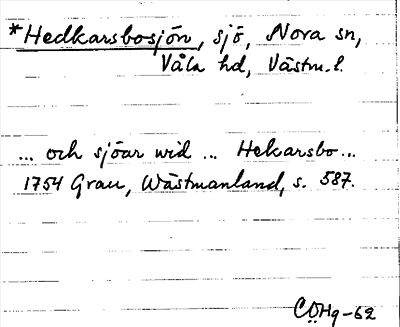 *Hedkarsbosjön, sjö, Nora sn,
Våla hd, Västm. l.
... och sjöar wid ... Hekarsbo...
1754 Grau, Wästmanland, s. 587.
CÖHg-62